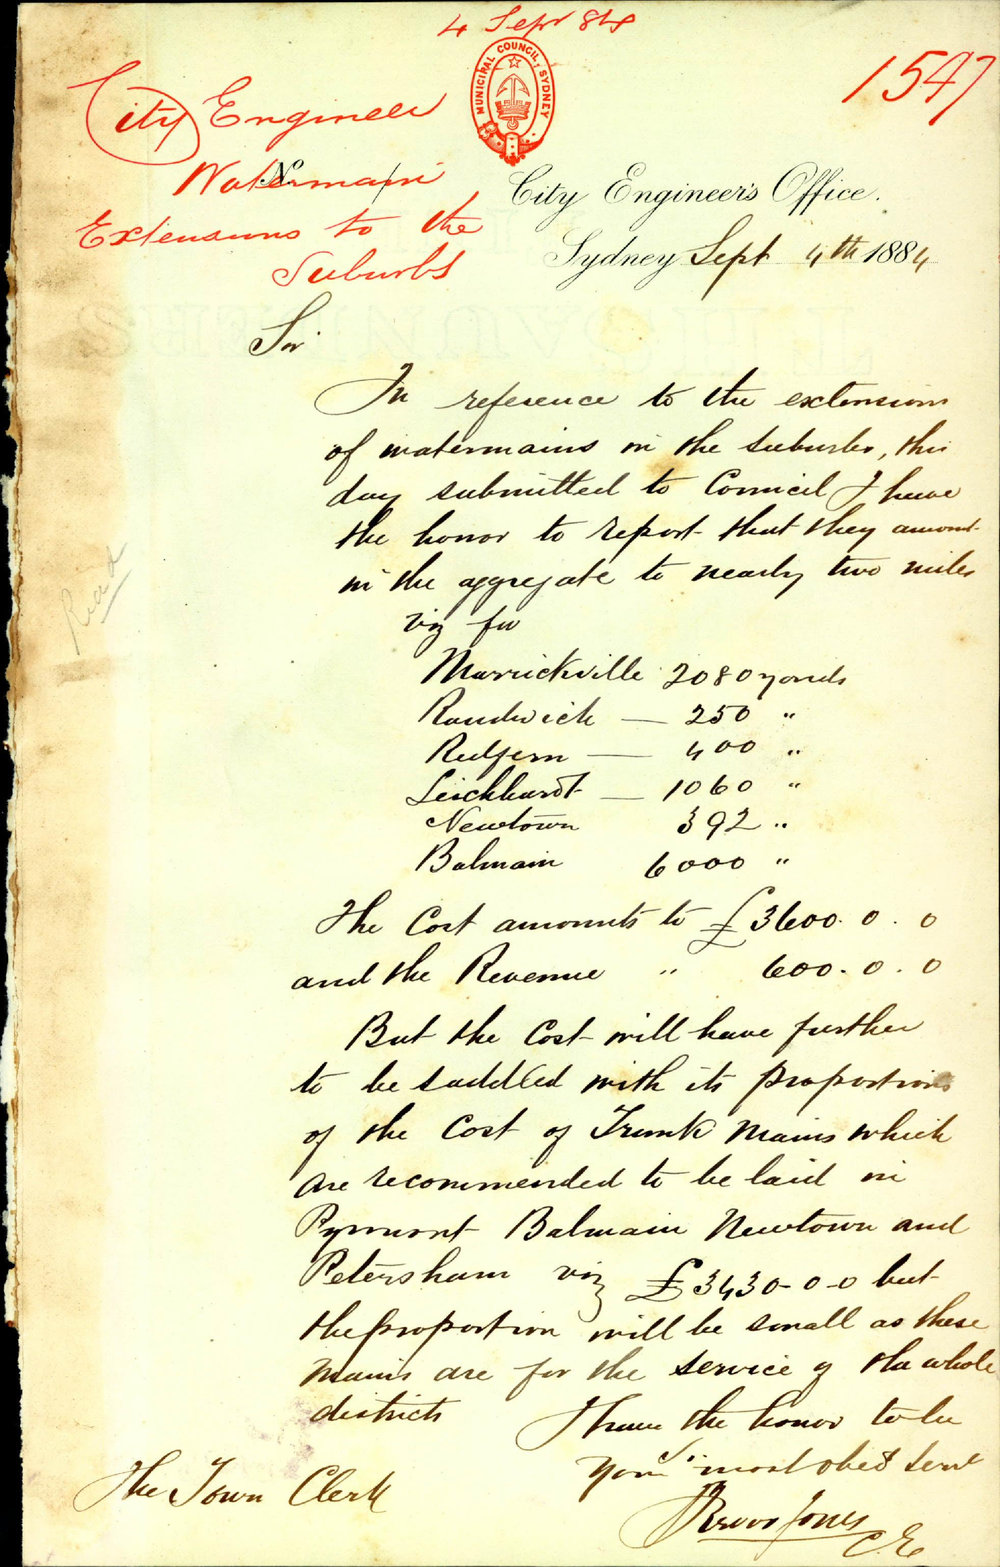 4 Sepr 84
1547
MUNICIPAL COUNCIL, SYDNEY
City Engineer
Watermain
Extensions to the
Suburbs
No.
City Engineer's Office.
Sydney Sept 4th 1884
Sir
In reference to the extensions
of watermains in the suburbs, this
day submitted to Council I have
the honor to report that they amount
in the aggregate to nearly two miles
viz for
Marrickville 2080 yards
Randwick — 250 "
Redfern — 400 "
Leichhardt — 1060 "
Newtown 392 "
Balmain 6000 "
The Cost amounts to £3600. 0. 0
and the Revenue " 600. 0. 0
But the Cost will have further
to be saddled with its proportions
of the Cost of Trunk Mains which
are recommended to be laid in
Pyrmont Balmain Newtown and
Petersham viz £3430-0-0 but
the proportion will be small as these
mains are for the service of the whole
districts
I have the honor to be
Your most obedt servt
Jones
C.E.
The Town Clerk
Read